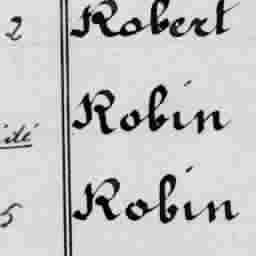 2 Robert
Robin
5 Robin